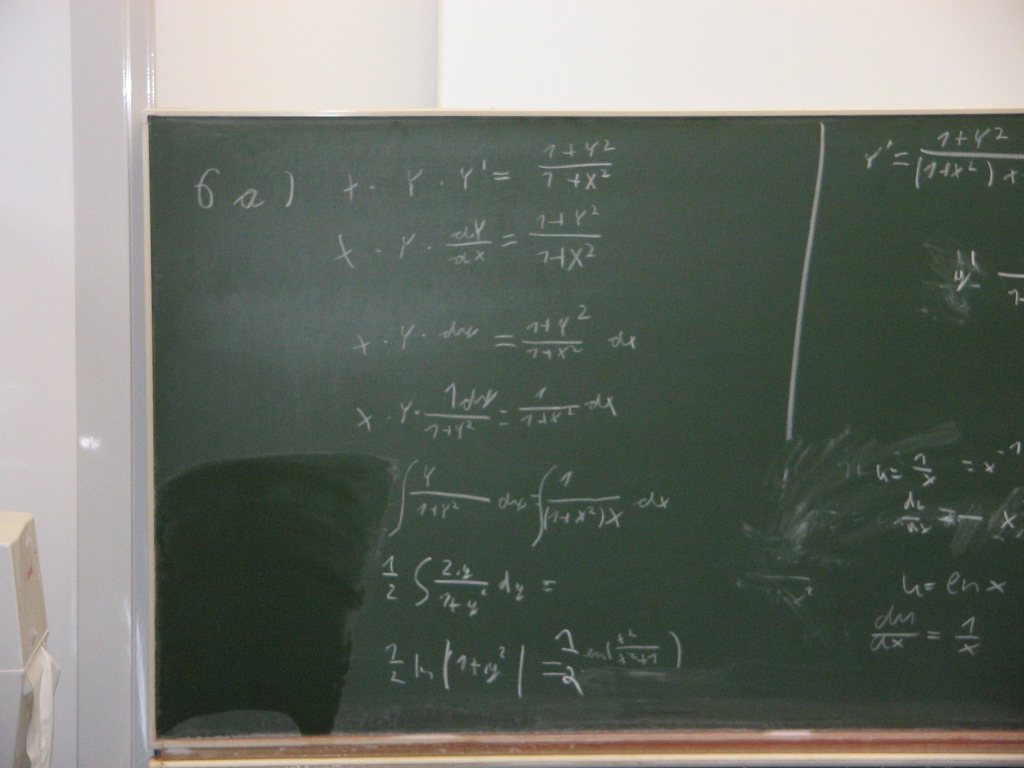 6 a) x · y · y' = (1+y²)/(1+x²)
x · y · dy/dx = (1+y²)/(1+x²)
x · y · dy = (1+y²)/(1+x²) dx
x · y · 1dy/(1+y²) = 1/(1+x²) dx
∫ y/(1+y²) dx = ∫ 1/((1+x²)x) dx
1/2 ∫ 2·y/(1+y²) dy =
1/2 ln|1+y²| = 1/2 ln(x²/(x²+1))
y' = (1+y²)/((1+x²)x
u = 1/x = x⁻¹
du/dx = - x
u = ln x
du/dx = 1/x